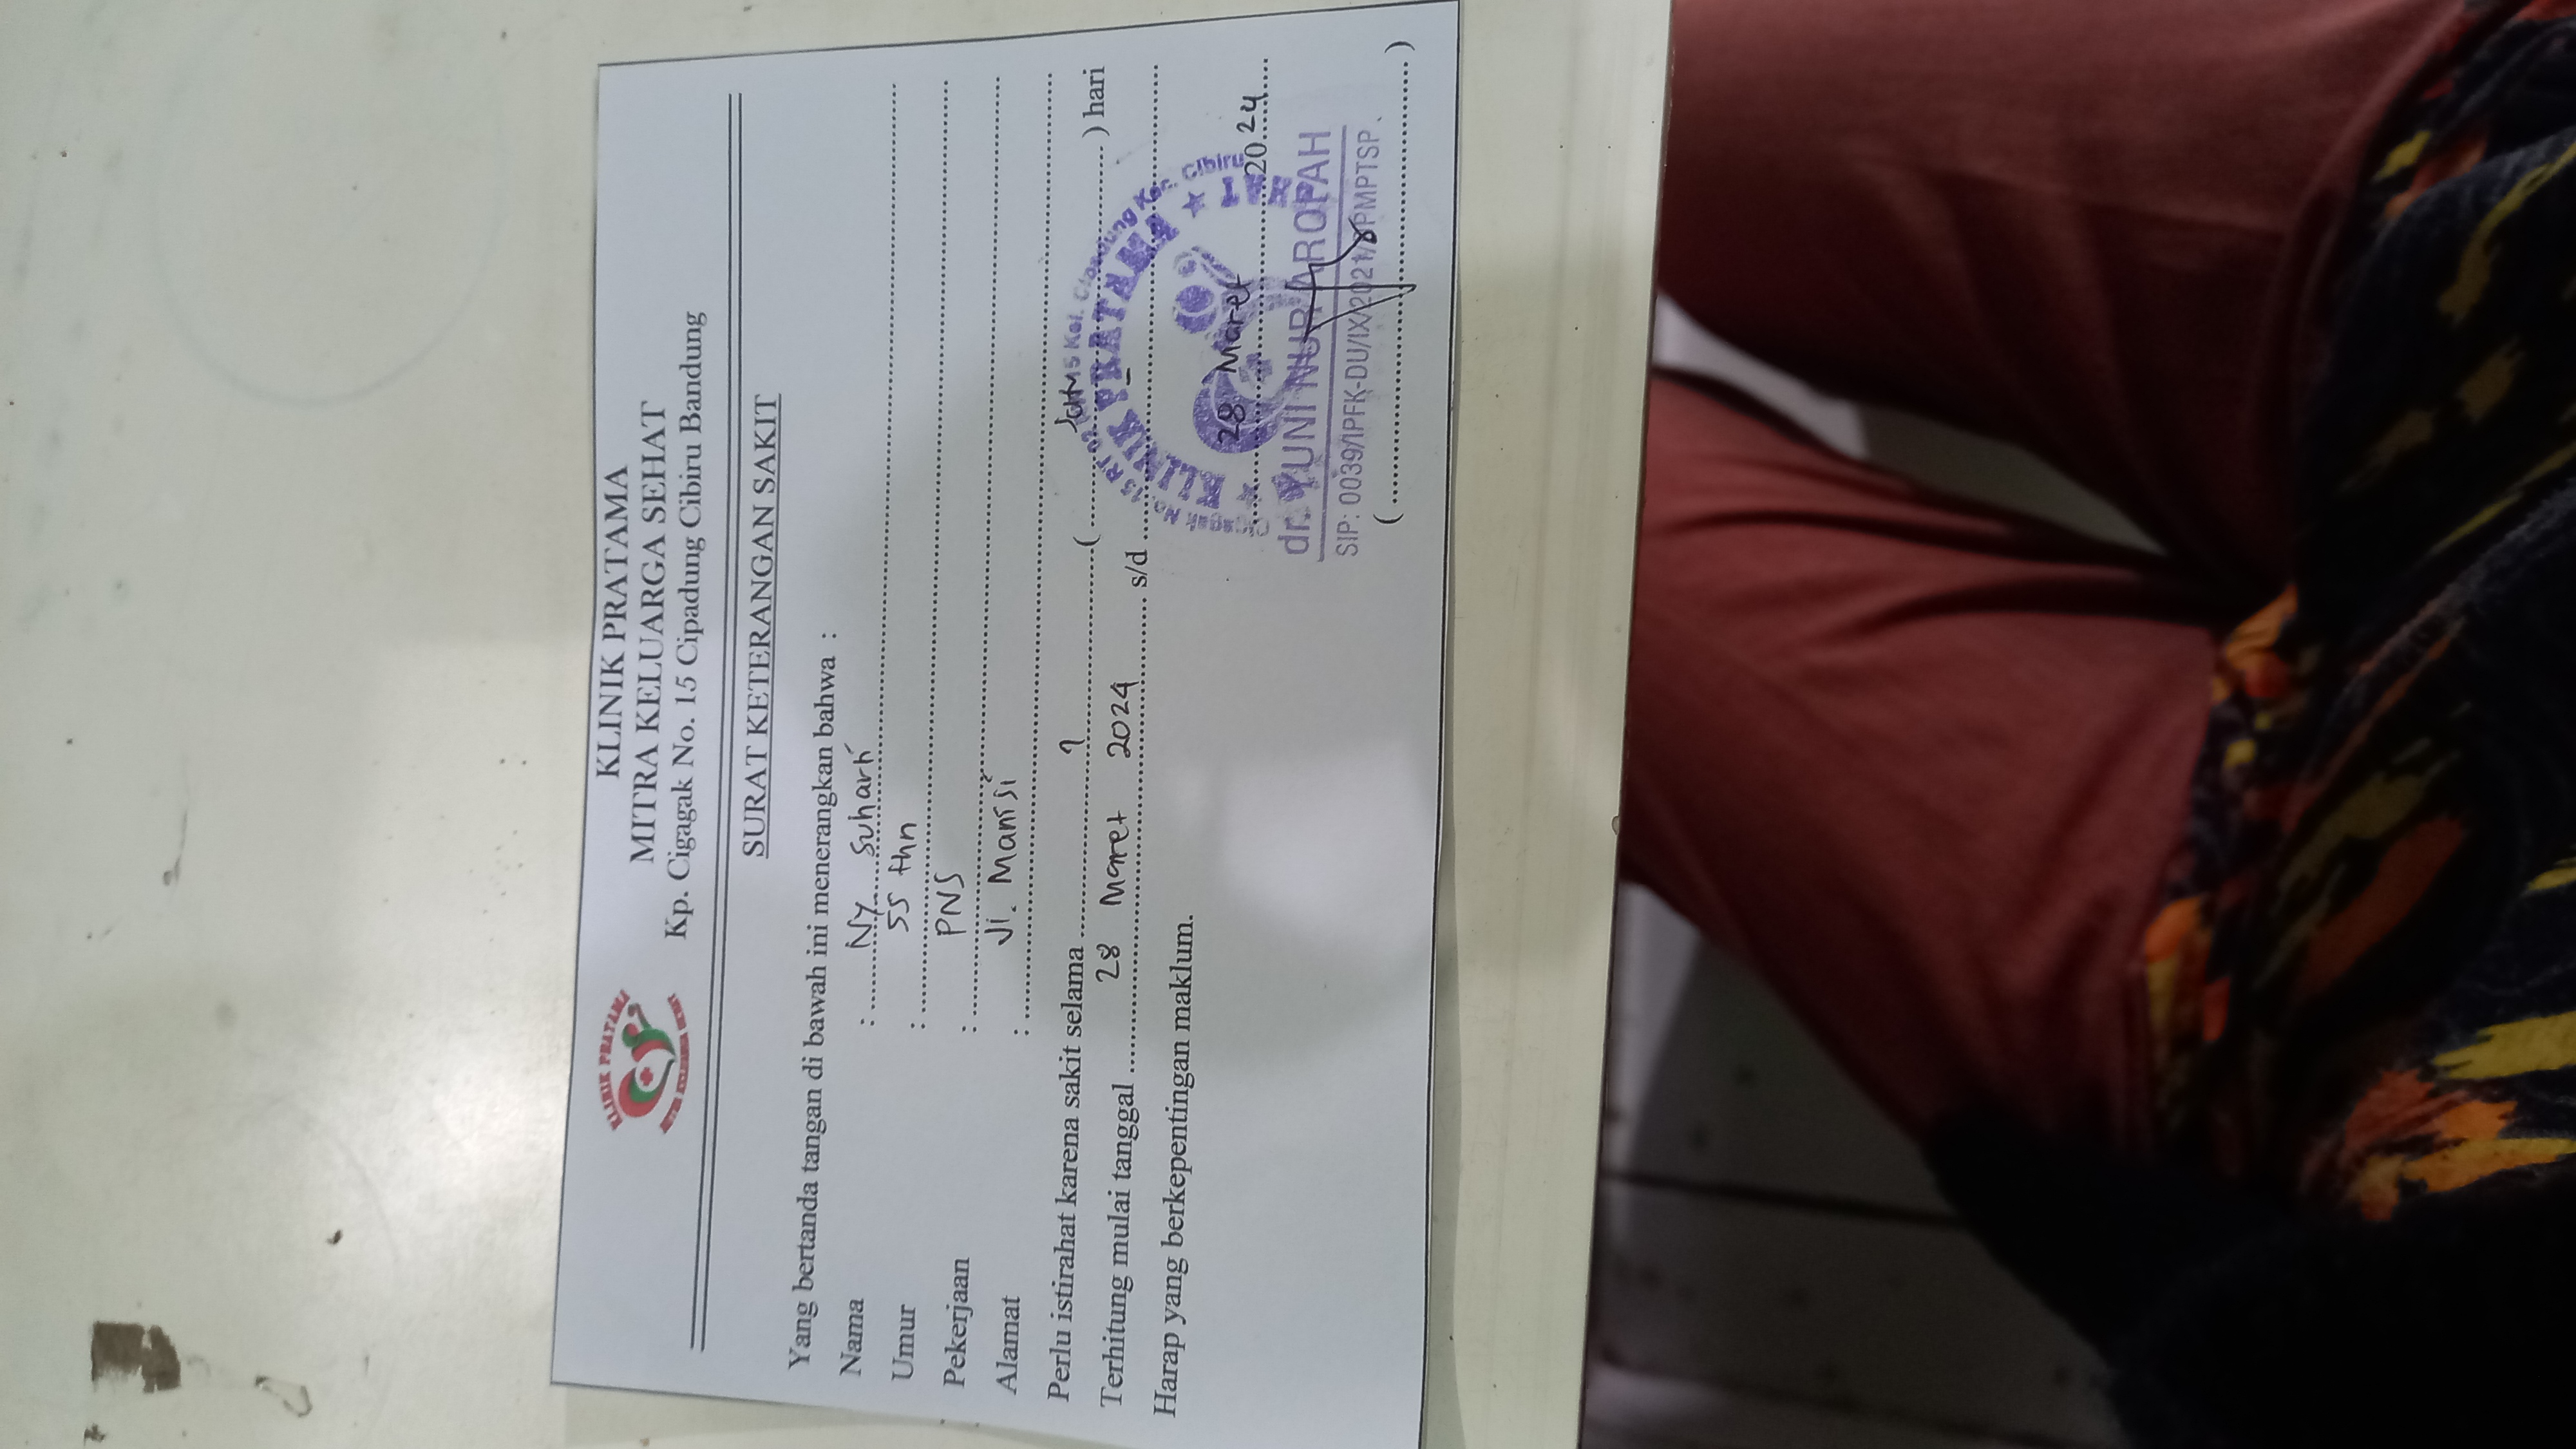 KLINIK PRATAMA
MITRA KELUARGA SEHAT
KLINIK PRATAMA
MITRA KELUARGA SEHAT
Kp. Cigagak No. 15 Cipadung Cibiru Bandung
SURAT KETERANGAN SAKIT
Yang bertanda tangan di bawah ini menerangkan bahwa :
Nama : Ny Suharti
Umur : 55 thn
Pekerjaan : PNS
Alamat : Jl. Manisi
Perlu istirahat karena sakit selama 1 ( Satu ) hari
Terhitung mulai tanggal 28 Maret 2024 s/d -
Harap yang berkepentingan maklum.
Cigagak No. 15 RT 02 15 Kel. Cipadung Kec. Cibiru
★ KLINIK PRATAMA ★
28 Maret 2024
dr. YUNI NUR AROFAH
SIP: 0039/IPFK-DU/IX/2021/DPMPTSP.
( )